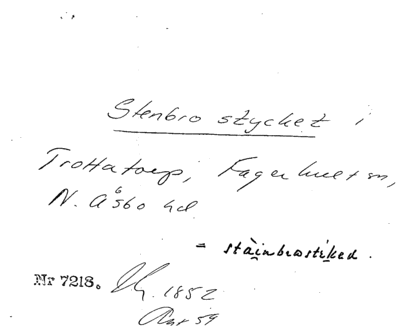 Stenbro stycket i
Trottatorp, Fagerhult sn,
N. Åsbo hd
= stäinbrostiked.
Nr 7218. 1852